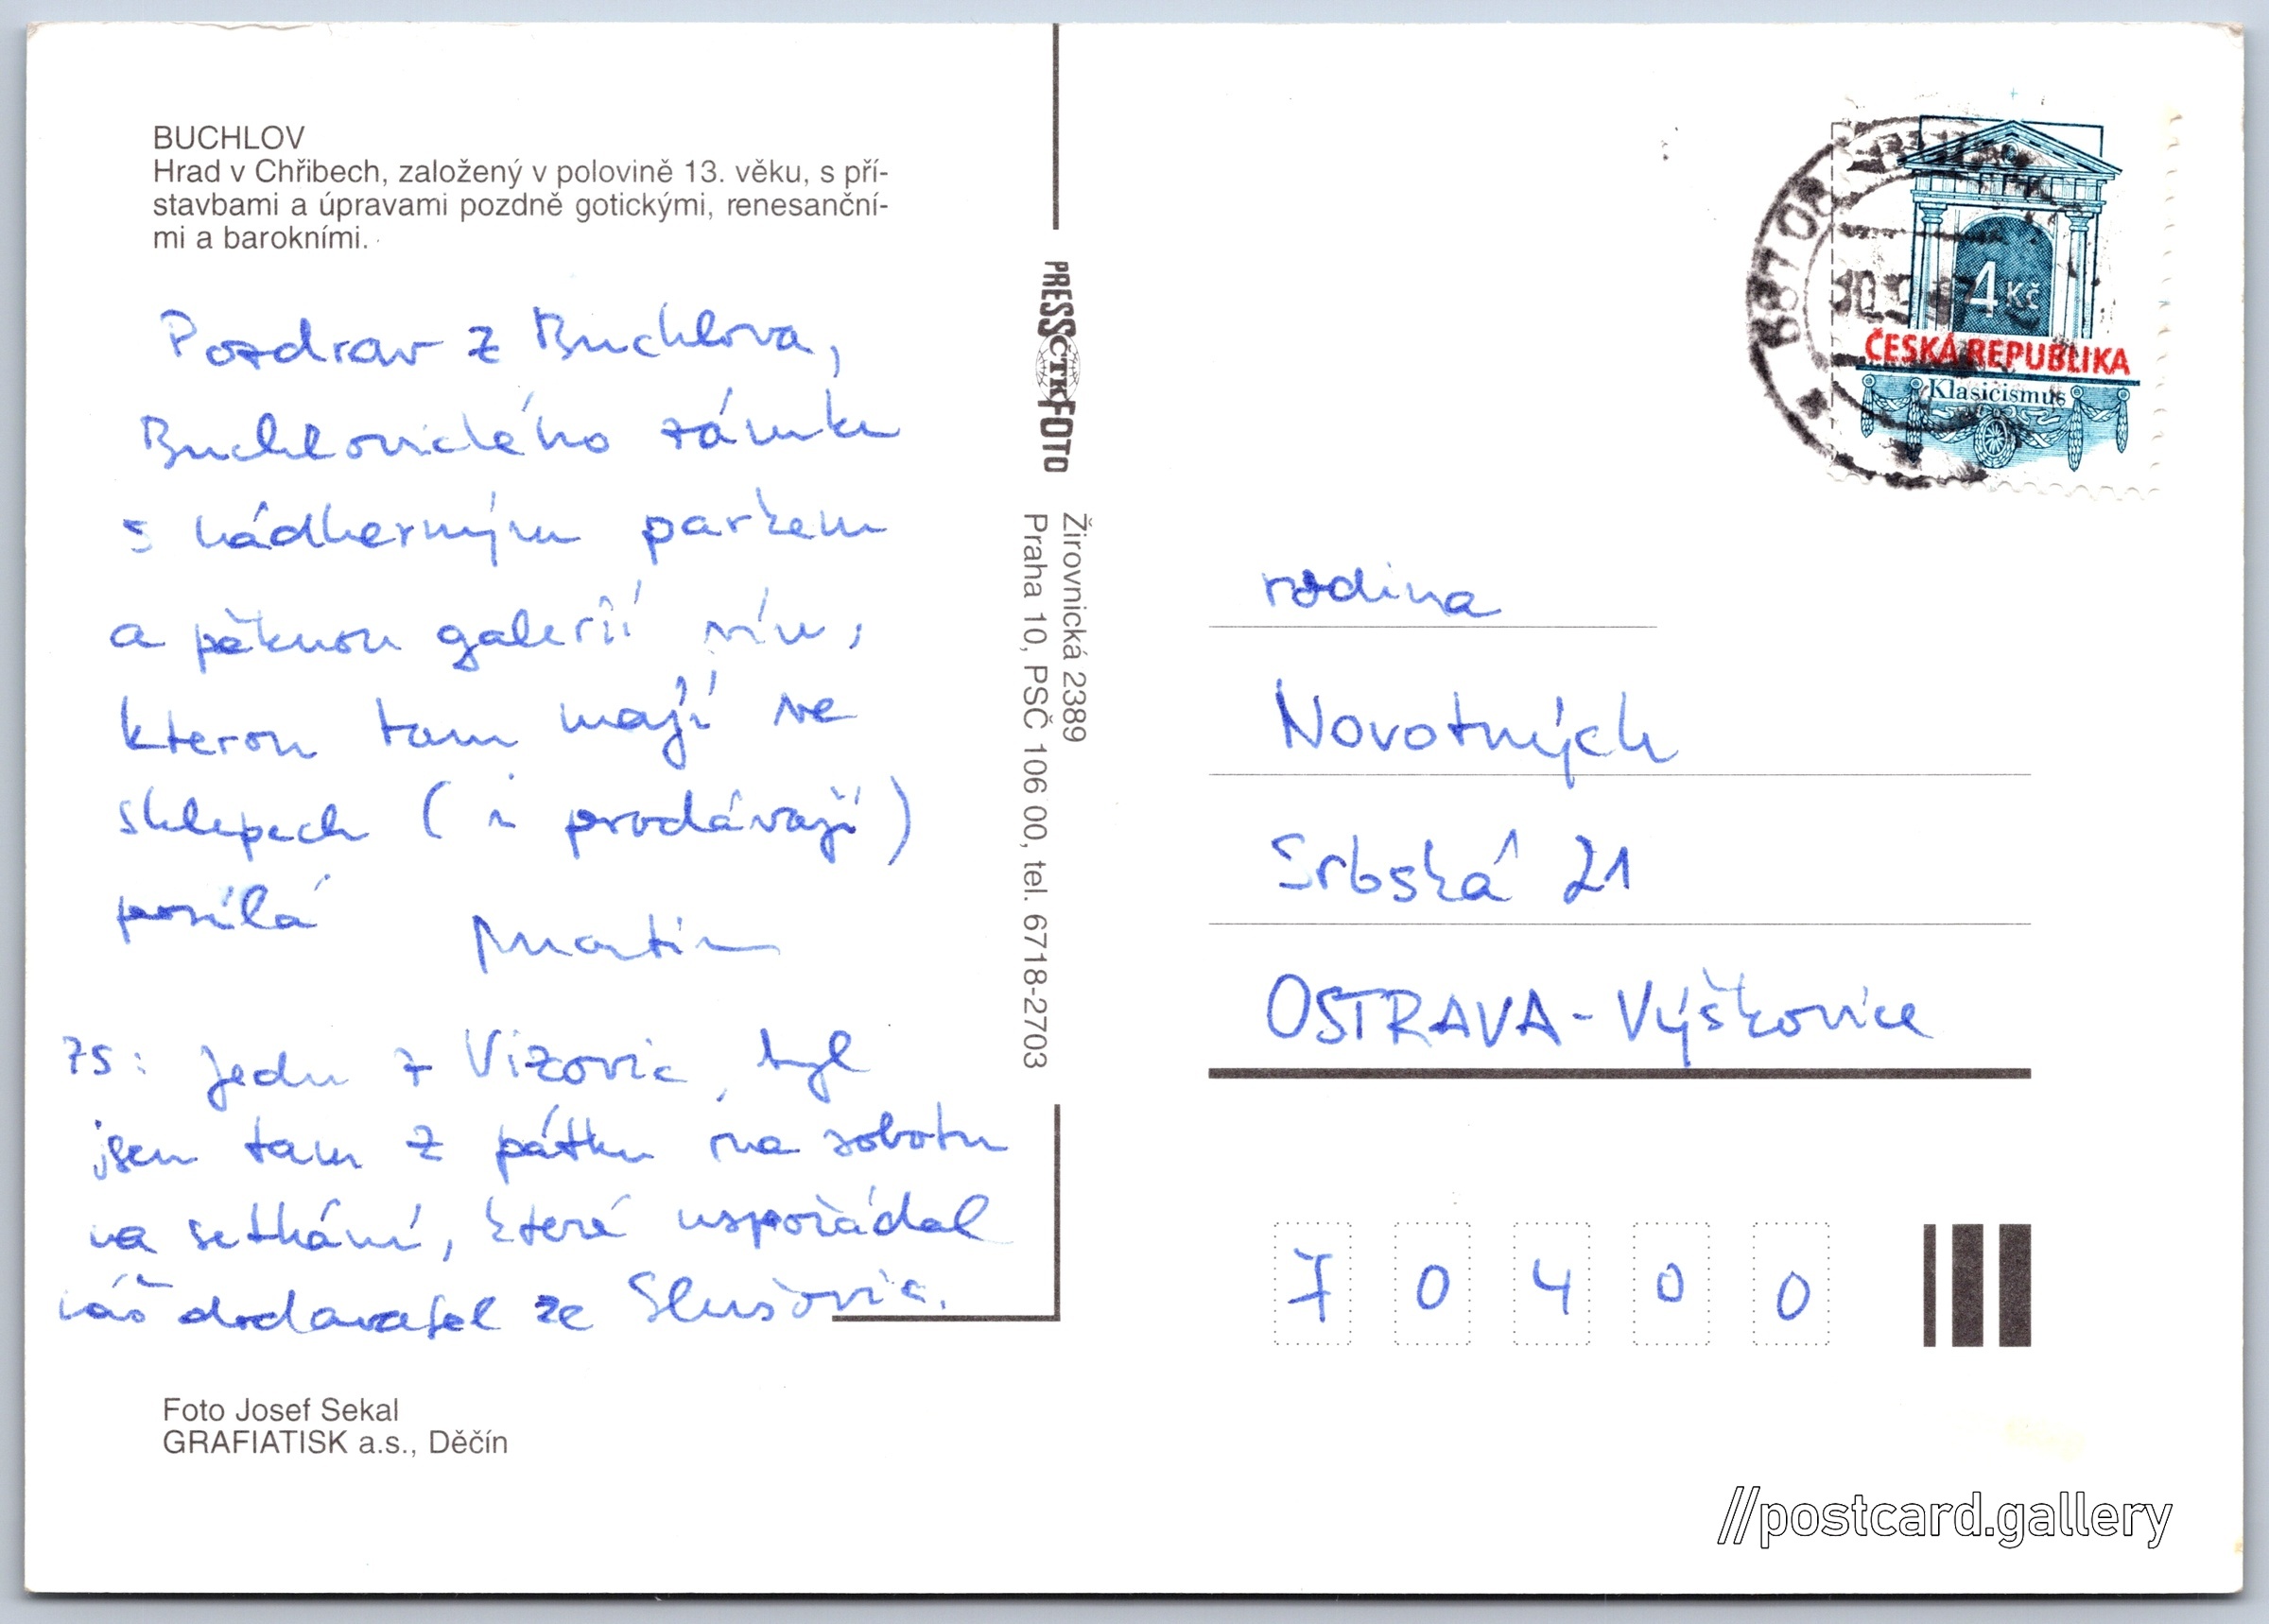 BUCHLOV
Hrad v Chřibech, založený v polovině 13. věku, s pří-
stavbami a úpravami pozdně gotickými, renesanční-
mi a barokními.
Pozdrav z Buchlova,
Buchlovického zámku
s nádherným parkem
a pěknou galerií vín,
kterou tam mají ve
sklepech (i prodávají)
posílá Martin
PS: Jedu z Vizovic, byl
jsem tam z pátku na sobotu
na setkání, které uspořádal
náš dodavatel ze Slušovic.
Foto Josef Sekal
GRAFIATISK a.s., Děčín
PRESSFOTO
ČTK
Žirovnická 2389
Praha 10, PSČ 106 00, tel. 6718-2703
4 Kč
ČESKÁ REPUBLIKA
Klasicismus
rodina
Novotných
Srbská 21
OSTRAVA - Výškovice
7 0 4 0 0
//postcard.gallery